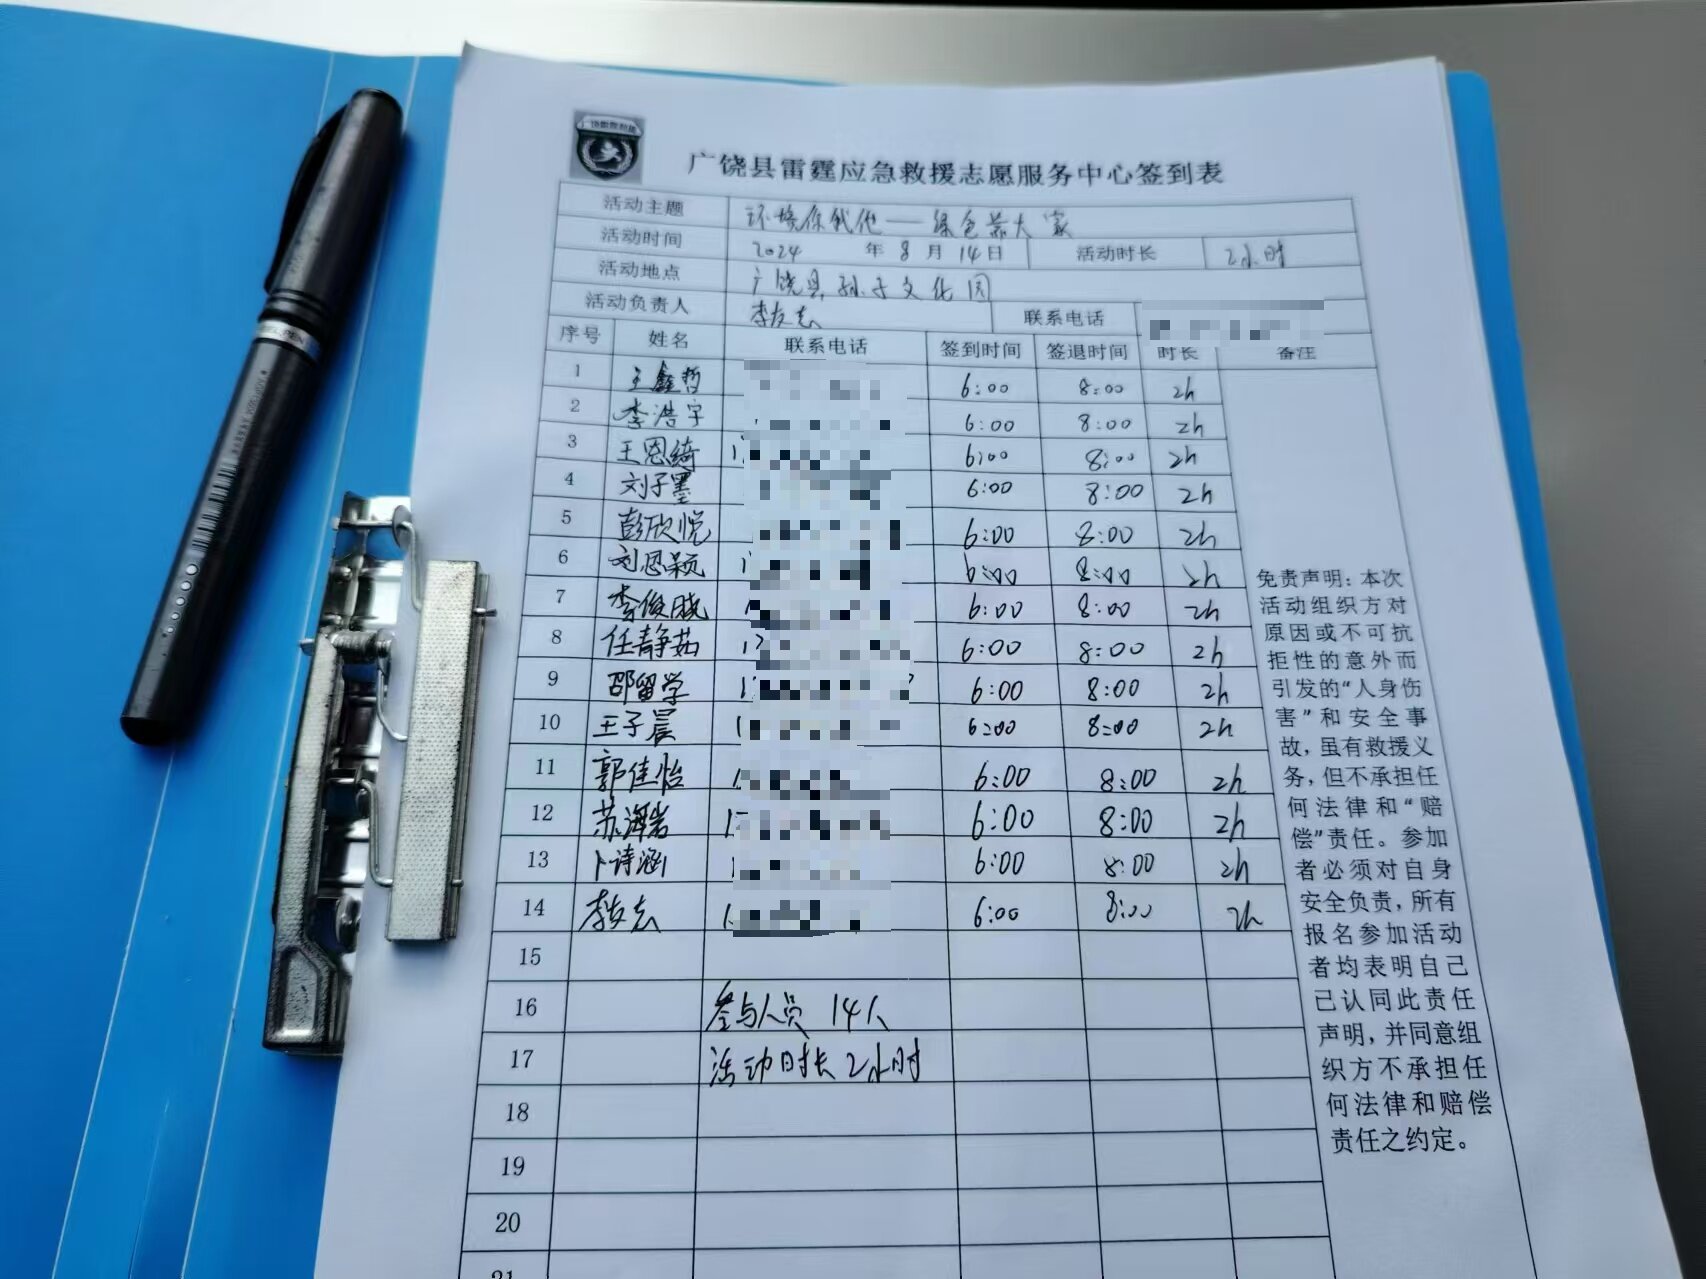 广饶县雷霆应急救援志愿服务中心签到表
活动主题 环境你我他——绿色靠大家
活动时间 2024 年 8 月 14 日 活动时长 2小时
活动地点 广饶县孙子文化园
活动负责人 李友志 联系电话
序号 姓名 联系电话 签到时间 签退时间 时长 备注
1 王鑫哲 6:00 8:00 2h
2 李浩宇 6:00 8:00 2h
3 王恩绮 6:00 8:00 2h
4 刘子墨 6:00 8:00 2h
5 彭欣悦 6:00 8:00 2h
6 刘恩颖 6:00 8:00 2h
7 李俊晓 6:00 8:00 2h
8 任静茹 6:00 8:00 2h
9 邵留学 6:00 8:00 2h
10 王子晨 6:00 8:00 2h
11 郭佳怡 6:00 8:00 2h
12 苏海岩 6:00 8:00 2h
13 卜诗涵 6:00 8:00 2h
14 李友志 6:00 8:00 2h
15
16 参与人员 14人
17 活动时长 2小时
18
19
20
21
免责声明：本次
活动组织方对
原因或不可抗
拒性的意外而
引发的“人身伤
害”和安全事
故，虽有救援义
务，但不承担任
何法律和“赔
偿”责任。参加
者必须对自身
安全负责，所有
报名参加活动
者均表明自己
已认同此责任
声明，并同意组
织方不承担任
何法律和赔偿
责任之约定。